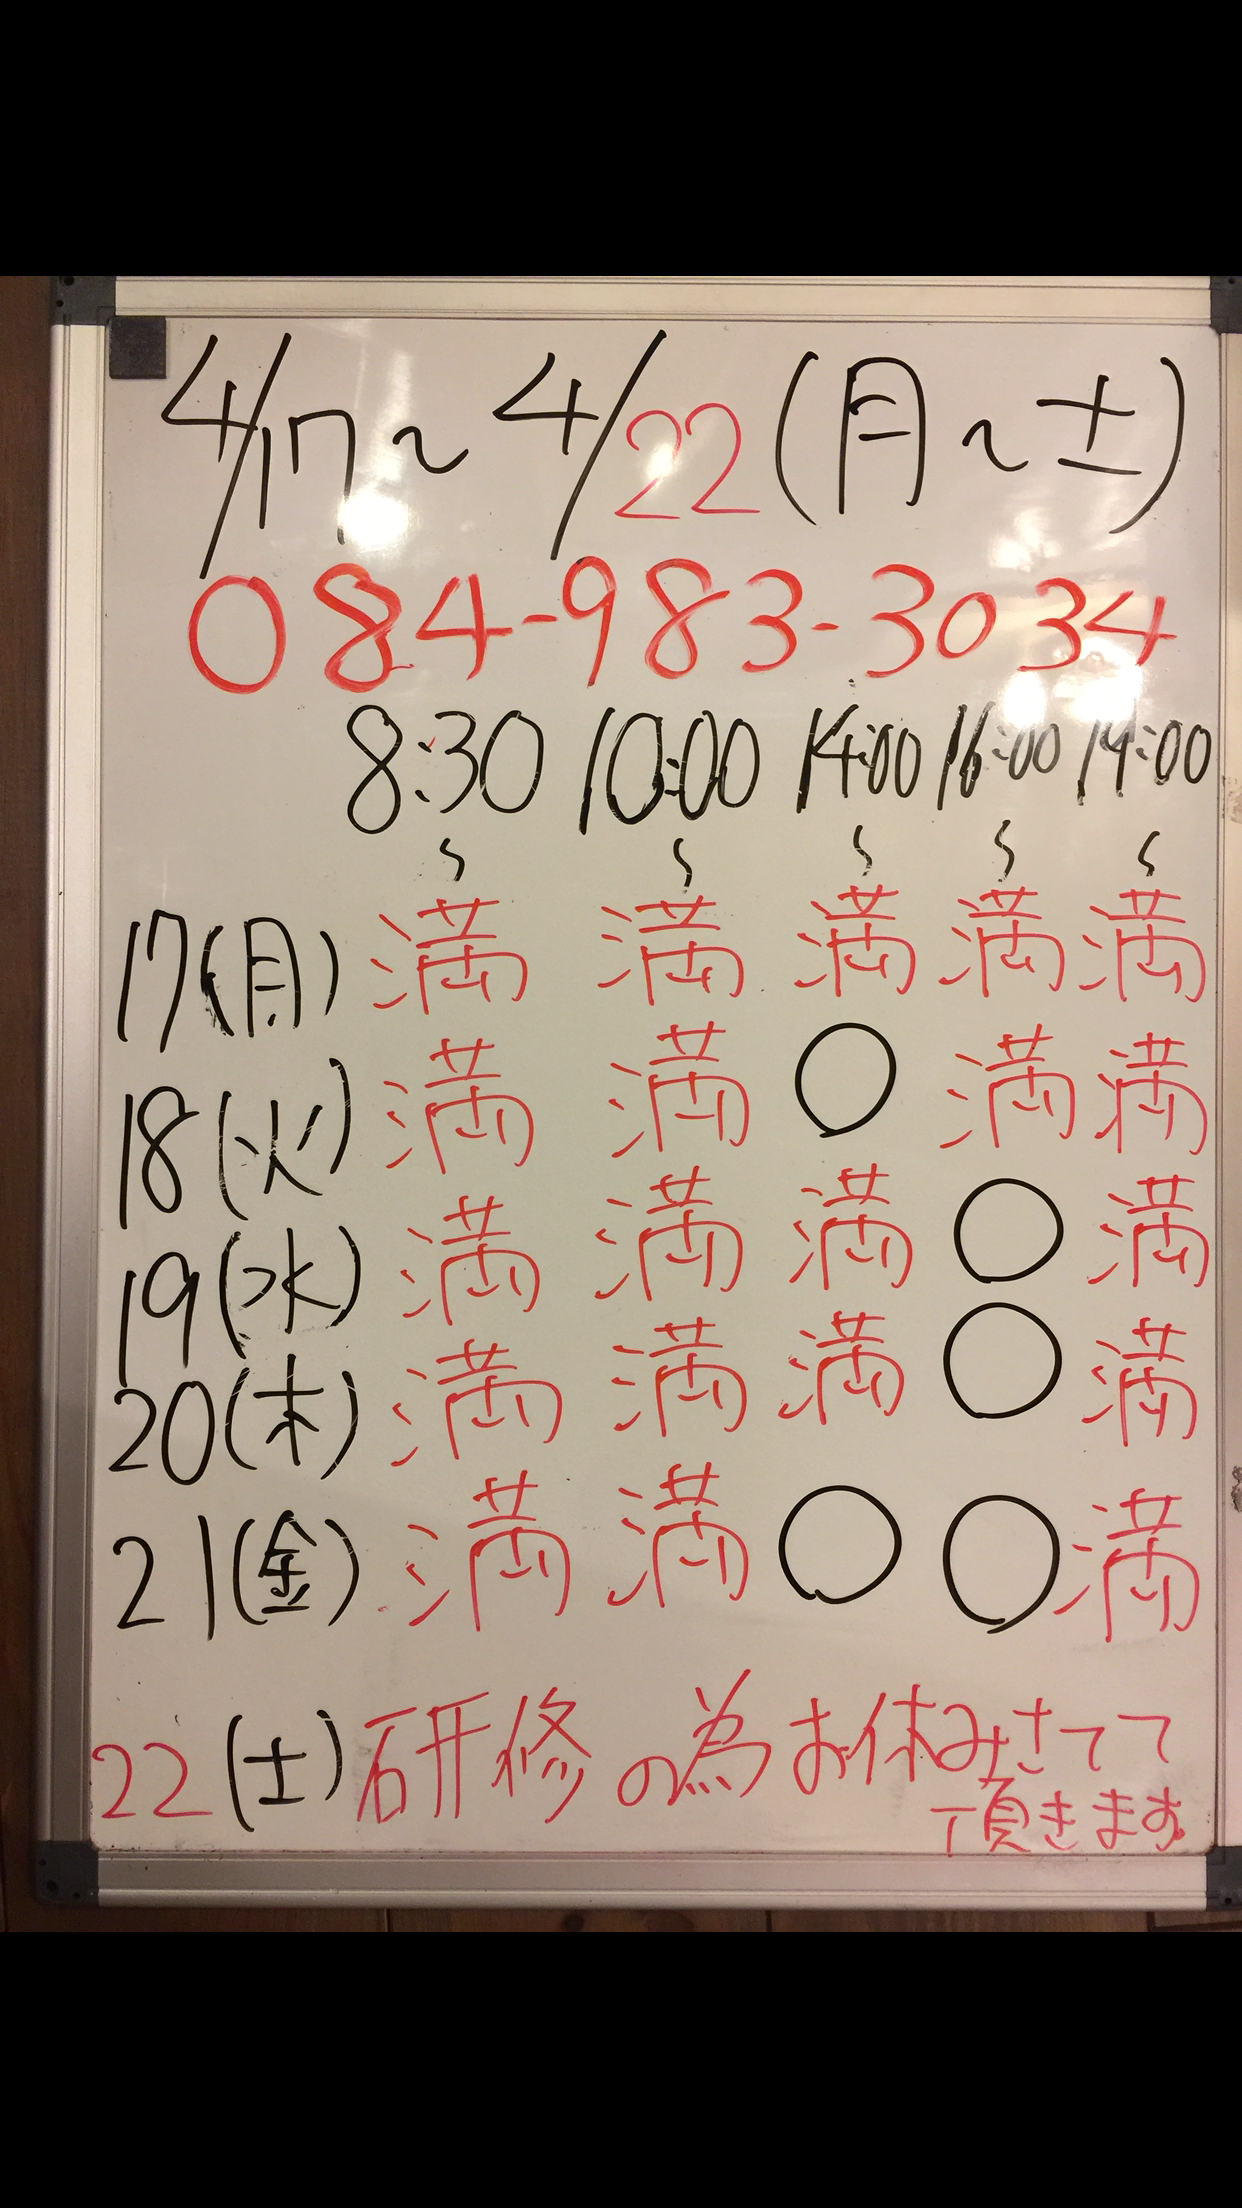 4/17~4/22(月~土)
084-983-3034
8:30 10:00 14:00 16:00 19:00
〜 〜 〜 〜 〜
17(月) 満 満 満 満 満
18(火) 満 満 ○ 満 満
19(水) 満 満 満 ○ 満
20(木) 満 満 満 ○ 満
21(金) 満 満 ○ ○ 満
22(土) 研修の為お休みさてて
頂きます